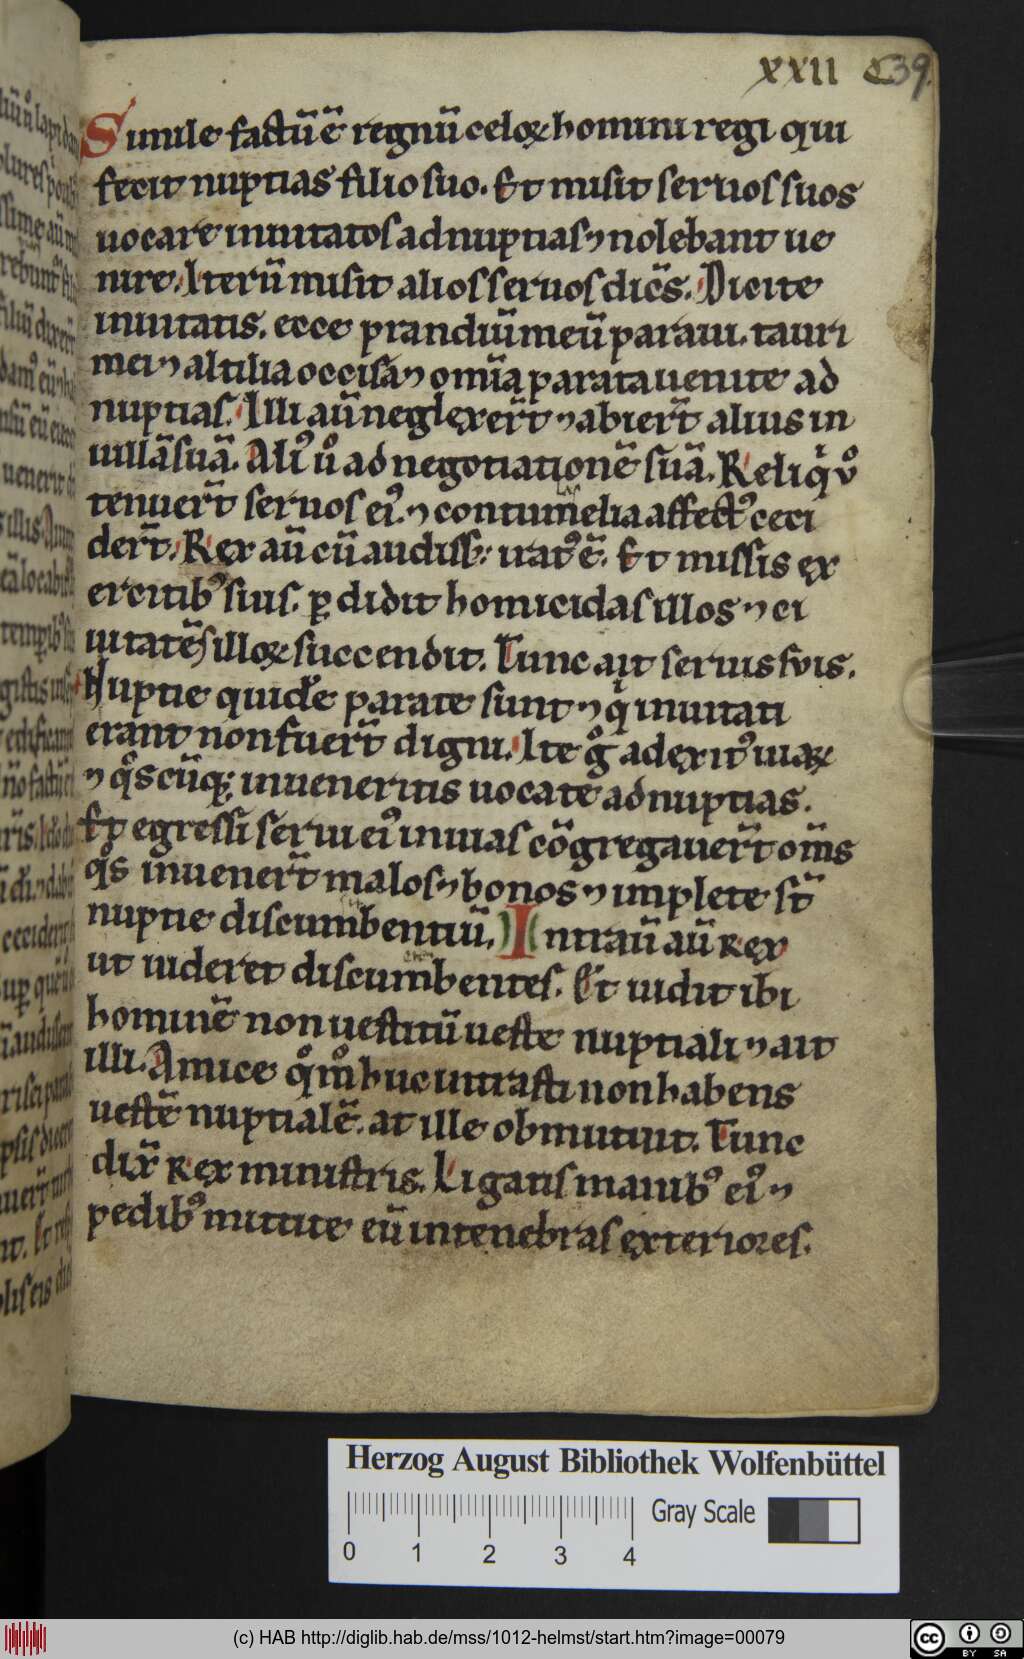 xxii 39.
Simile factū ē regnū celoꝝ homini regi qui
fecit nuptias filio suo. Et misit seruos suos
uocare inuitatos ad nuptias ⁊ nolebant ue
nire. Iterū misit alios seruos dic̄s. Dicite
inuitatis. ecce prandiū meū paraui. tauri
mei ⁊ altilia occisa ⁊ om̄ia parata uenite ad
nuptias. Illi aū neglexer̄t ⁊ abier̄t alius in
uillā suā. Aliꝰ ů ad negotiationē suā. Reliqͥ vͦ
tenuer̄t seruos eiꝰ. ⁊ contumelia affectꝰ ceci
der̄t. Rex aū cū audiss;. iratꝰ ē. Et missis ex
ercitibꝰ suis. ꝑdidit homicidas illos ⁊ ci
uitatēs illoꝝ succendit. Tunc ait seruis svis.
Nuptie quidē parate sunt ⁊ qͥ inuitati
erant non fuer̄t digni. Ite gͦ ad exitꝰ uiaꝝ
⁊ qͦscūqꝫ inueneritis uocate ad nuptias.
Et egressi serui eiꝰ in uias cōgregauer̄t om̄s
qͦs inuener̄t malos ⁊ bonos ⁊ implete st̄
nuptie discumbentiū. Intrau̅ aū rex
ut uideret discumbentes. Et uidit ibi
hominē non uestitū ueste nuptiali ⁊ ait
illi. Amice qͦmͦ huc intrasti non habens
uestē nuptialē. at ille obmutuit. Tunc
dix̄ rex ministris. Ligatis manibꝰ eiꝰ ⁊
pedibꝰ mittite eū in tenebras exteriores.
Herzog August Bibliothek Wolfenbüttel
Gray Scale
0 1 2 3 4
(c) HAB http://diglib.hab.de/mss/1012-helmst/start.htm?image=00079
cc BY SA